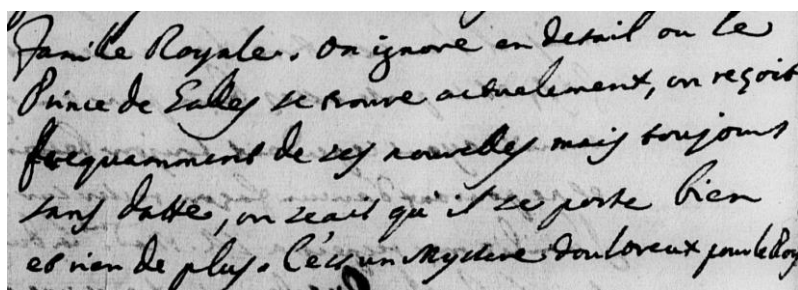 famille Royale. on ignore en detail ou le
Prince de Galles se trouve actuelement, on reçoit
frequamment de ses nouvelles mais toujours
sans datte, on scait qu'il se porte bien
et rien de plus. C'est un Mystere douloureux pour le Roy